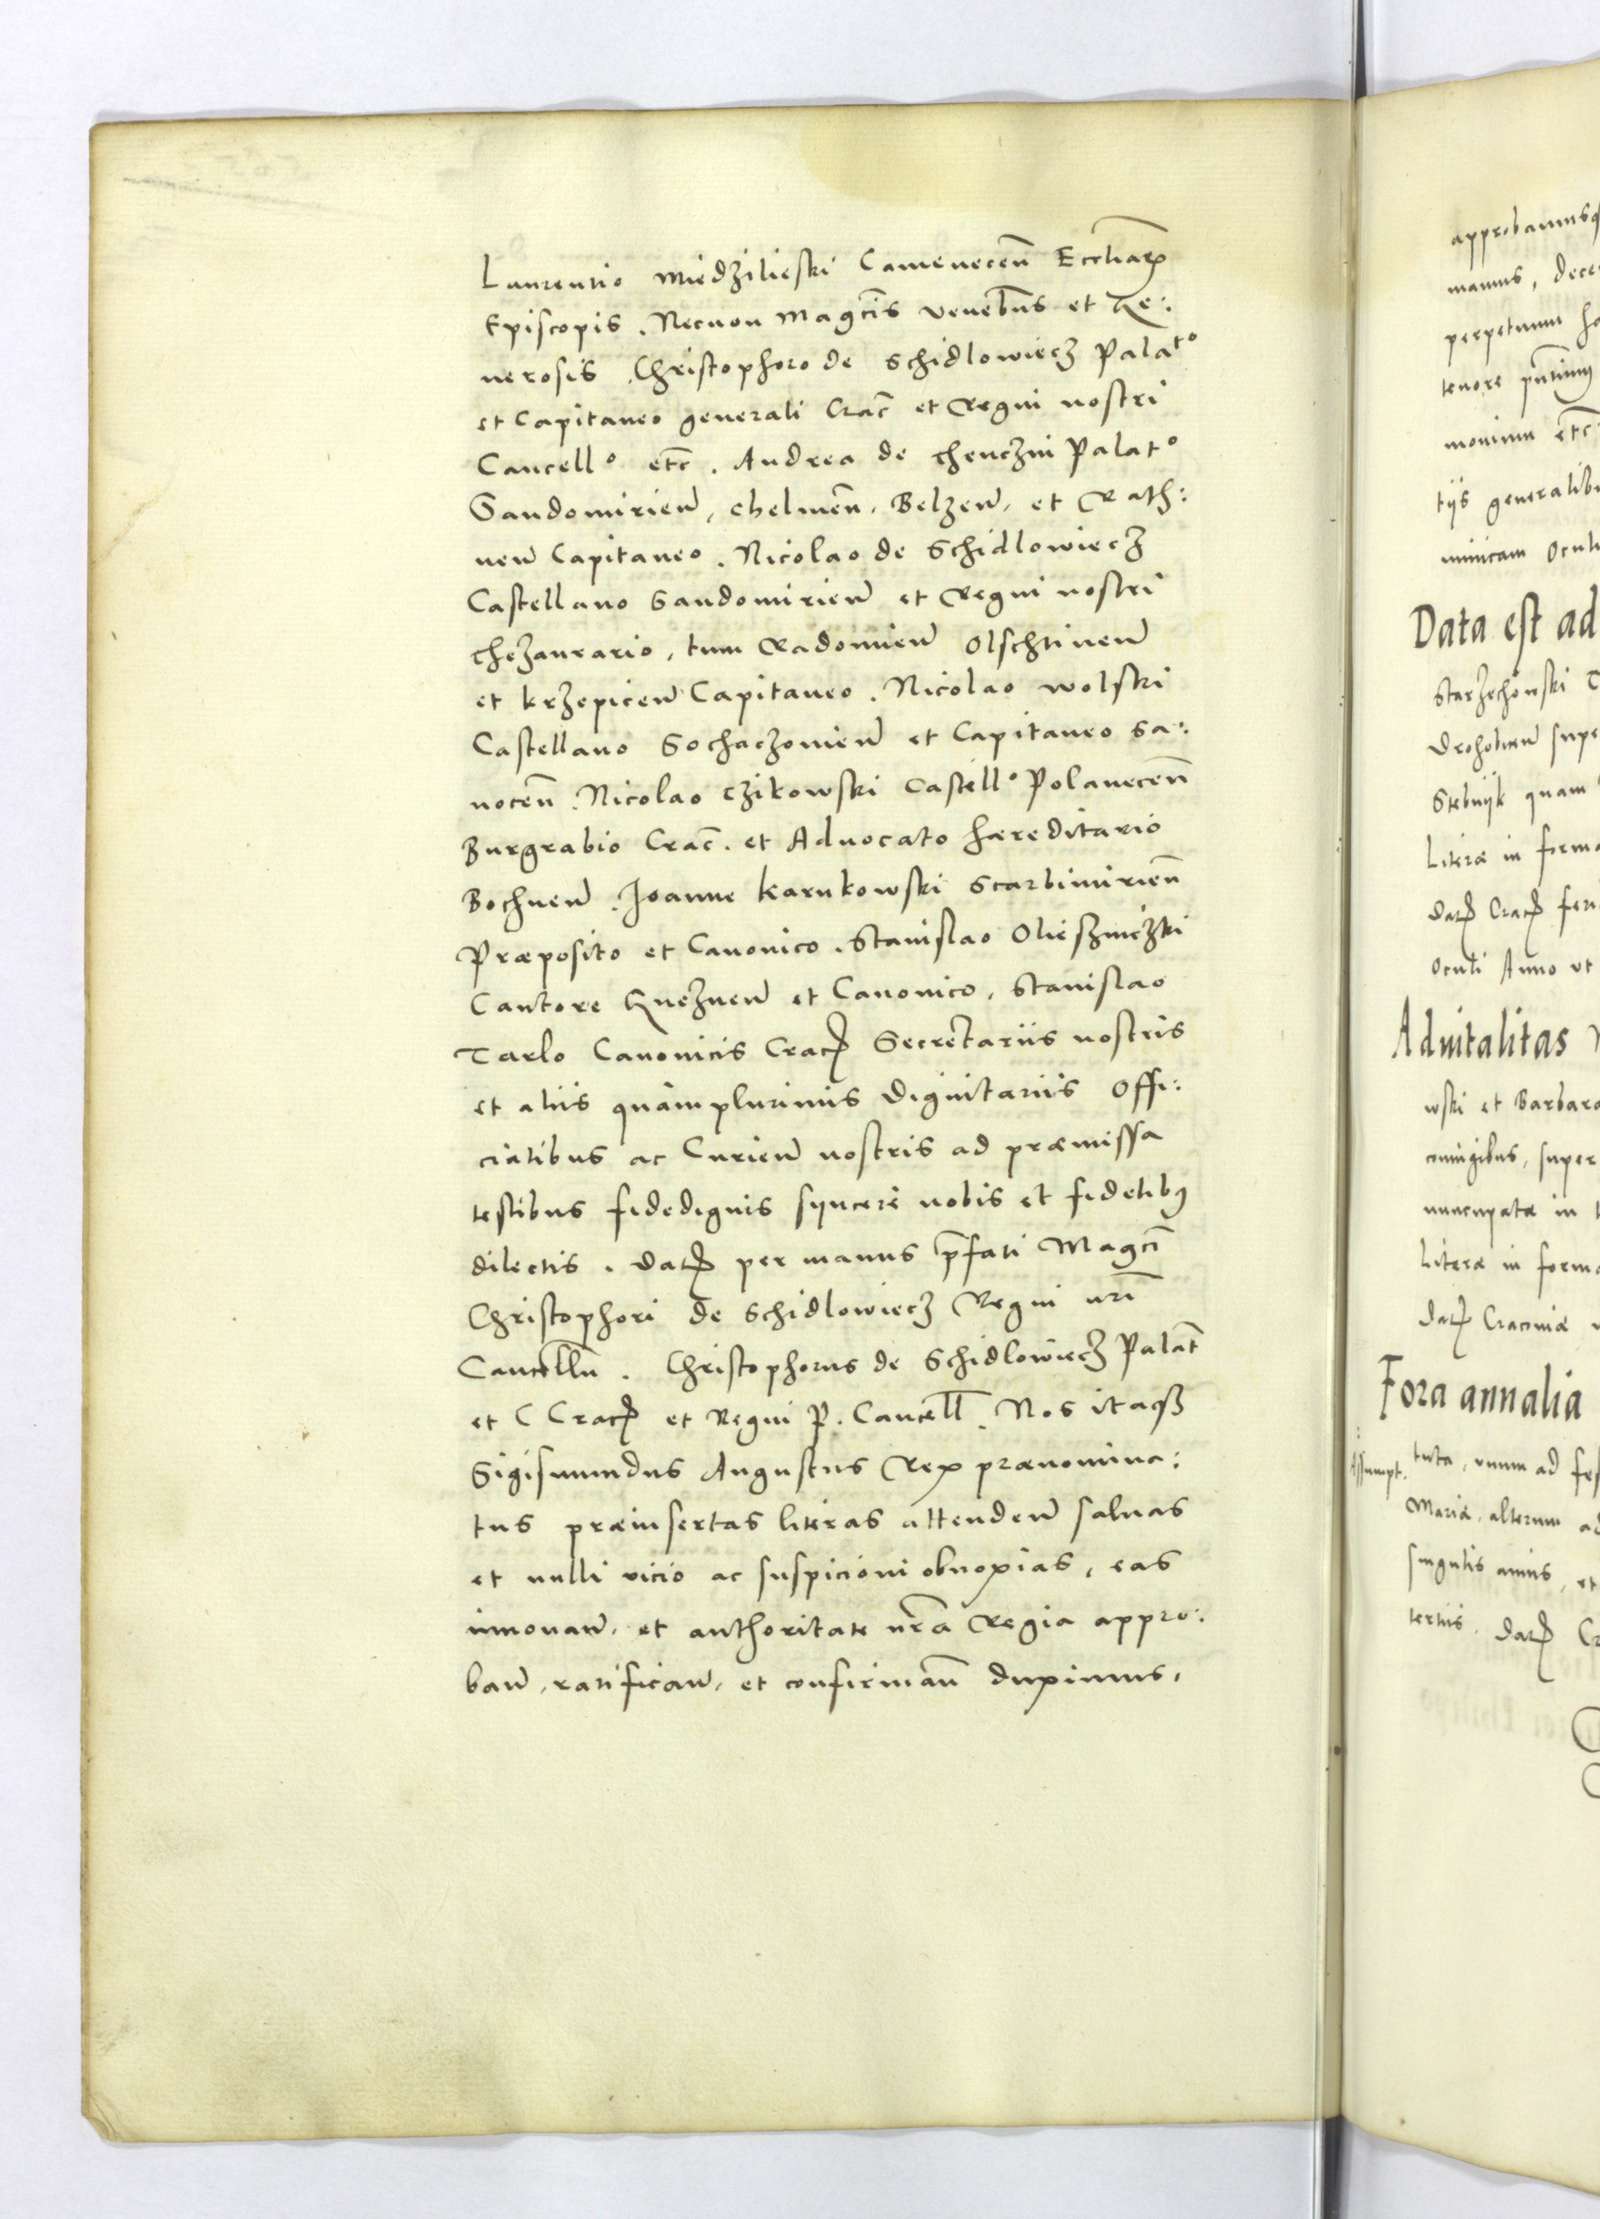 Laurentio Miedzilieski Camenecen̄ Eccliar̄
Episcopis. Necnon Magcīs veneb̄us et Ge:
nerosis. Christophoro de Schidlowiecz Palatº
et Capitaneo generali Crac̄ et Regni nostri
Cancellº etc̄. Andrea de Thenczin Palatº
Sandomirien̄, Chelmen̄, Belzen̄, et Rath:
nen̄ Capitaneo. Nicolao de Schidlowiecz
Castellano Sandomirien̄ et Regni nostri
Thezaurario, tum Radomien̄ Olschtinen̄
et Krzepicen̄ Capitaneo. Nicolao Wolski
Castellano Sochaczovien̄ et Capitaneo Sa:
nocen̄. Nicolao Czikowski Castellº Polanecen̄
Burgrabio Crac̄. et Advocato hæreditario
Bochnen̄. Joanne Karnkowski Scarbimirien̄
Præposito et Canonico. Stanislao Olieszniczki
Cantore Gneznen̄ et Canonico, Stanislao
Tarlo Canonicis Crac̄ Secretariis nostris
et aliis quamplurimis dignitariis offi:
cialibus ac Curien̄ nostris ad præmissa
testibus fidedignis syncere nobis et fidelibꝰ
dilectis. Dat̄ per manus p̄fati Magcī
Christophori de Schidlowiecz Regni nr̄i
Cancell̄n. Christophorus de Schidlowiecz Palat̄
et C Crac̄ et Regni P. Cancell̄. Nos itaqꝫ
Sigismundus Augustus Rex prænomina:
tus præinsertas literas attenden̄ salvas
et nulli vicio ac suspicioni obnoxias, eas
innovan̄, et authoritate nr̄a Regia appro:
ban̄, ratifican̄, et confirman̄ duximus,
approbamusq
mamus, dece
perpetuum ha
tenore pn̄tium
monium etc̄
tiis generalibu
minicam Oculi
Data est ad
Starzechowski
Drohobicen̄ supe
Stebnyk quam
Literæ in forma
Dat̄ Crac̄ feri
Oculi Anno ut
Advitalitas
wski et Barbara
coniugibus, super
nuncupatæ in
Literæ in forma
Dat̄ Cracoviæ
Fora annalia
Assumpt.
tuta, unum ad fes
Mariæ, alterum ad
singulis annis, et
tertiis. Dat̄ Cr